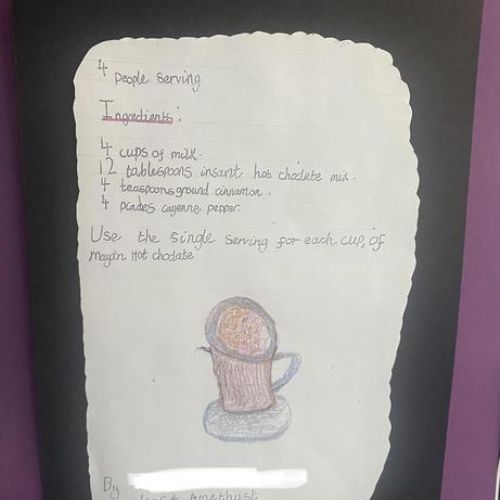 4 people serving
Ingredients:
4 cups of milk.
12 tablespoons insant hot choclate mix.
4 teaspoons ground cinnamon.
4 pinches cayenne pepper.
Use the single serving for each cup, of
Mayan Hot choclate
By
Amethyst